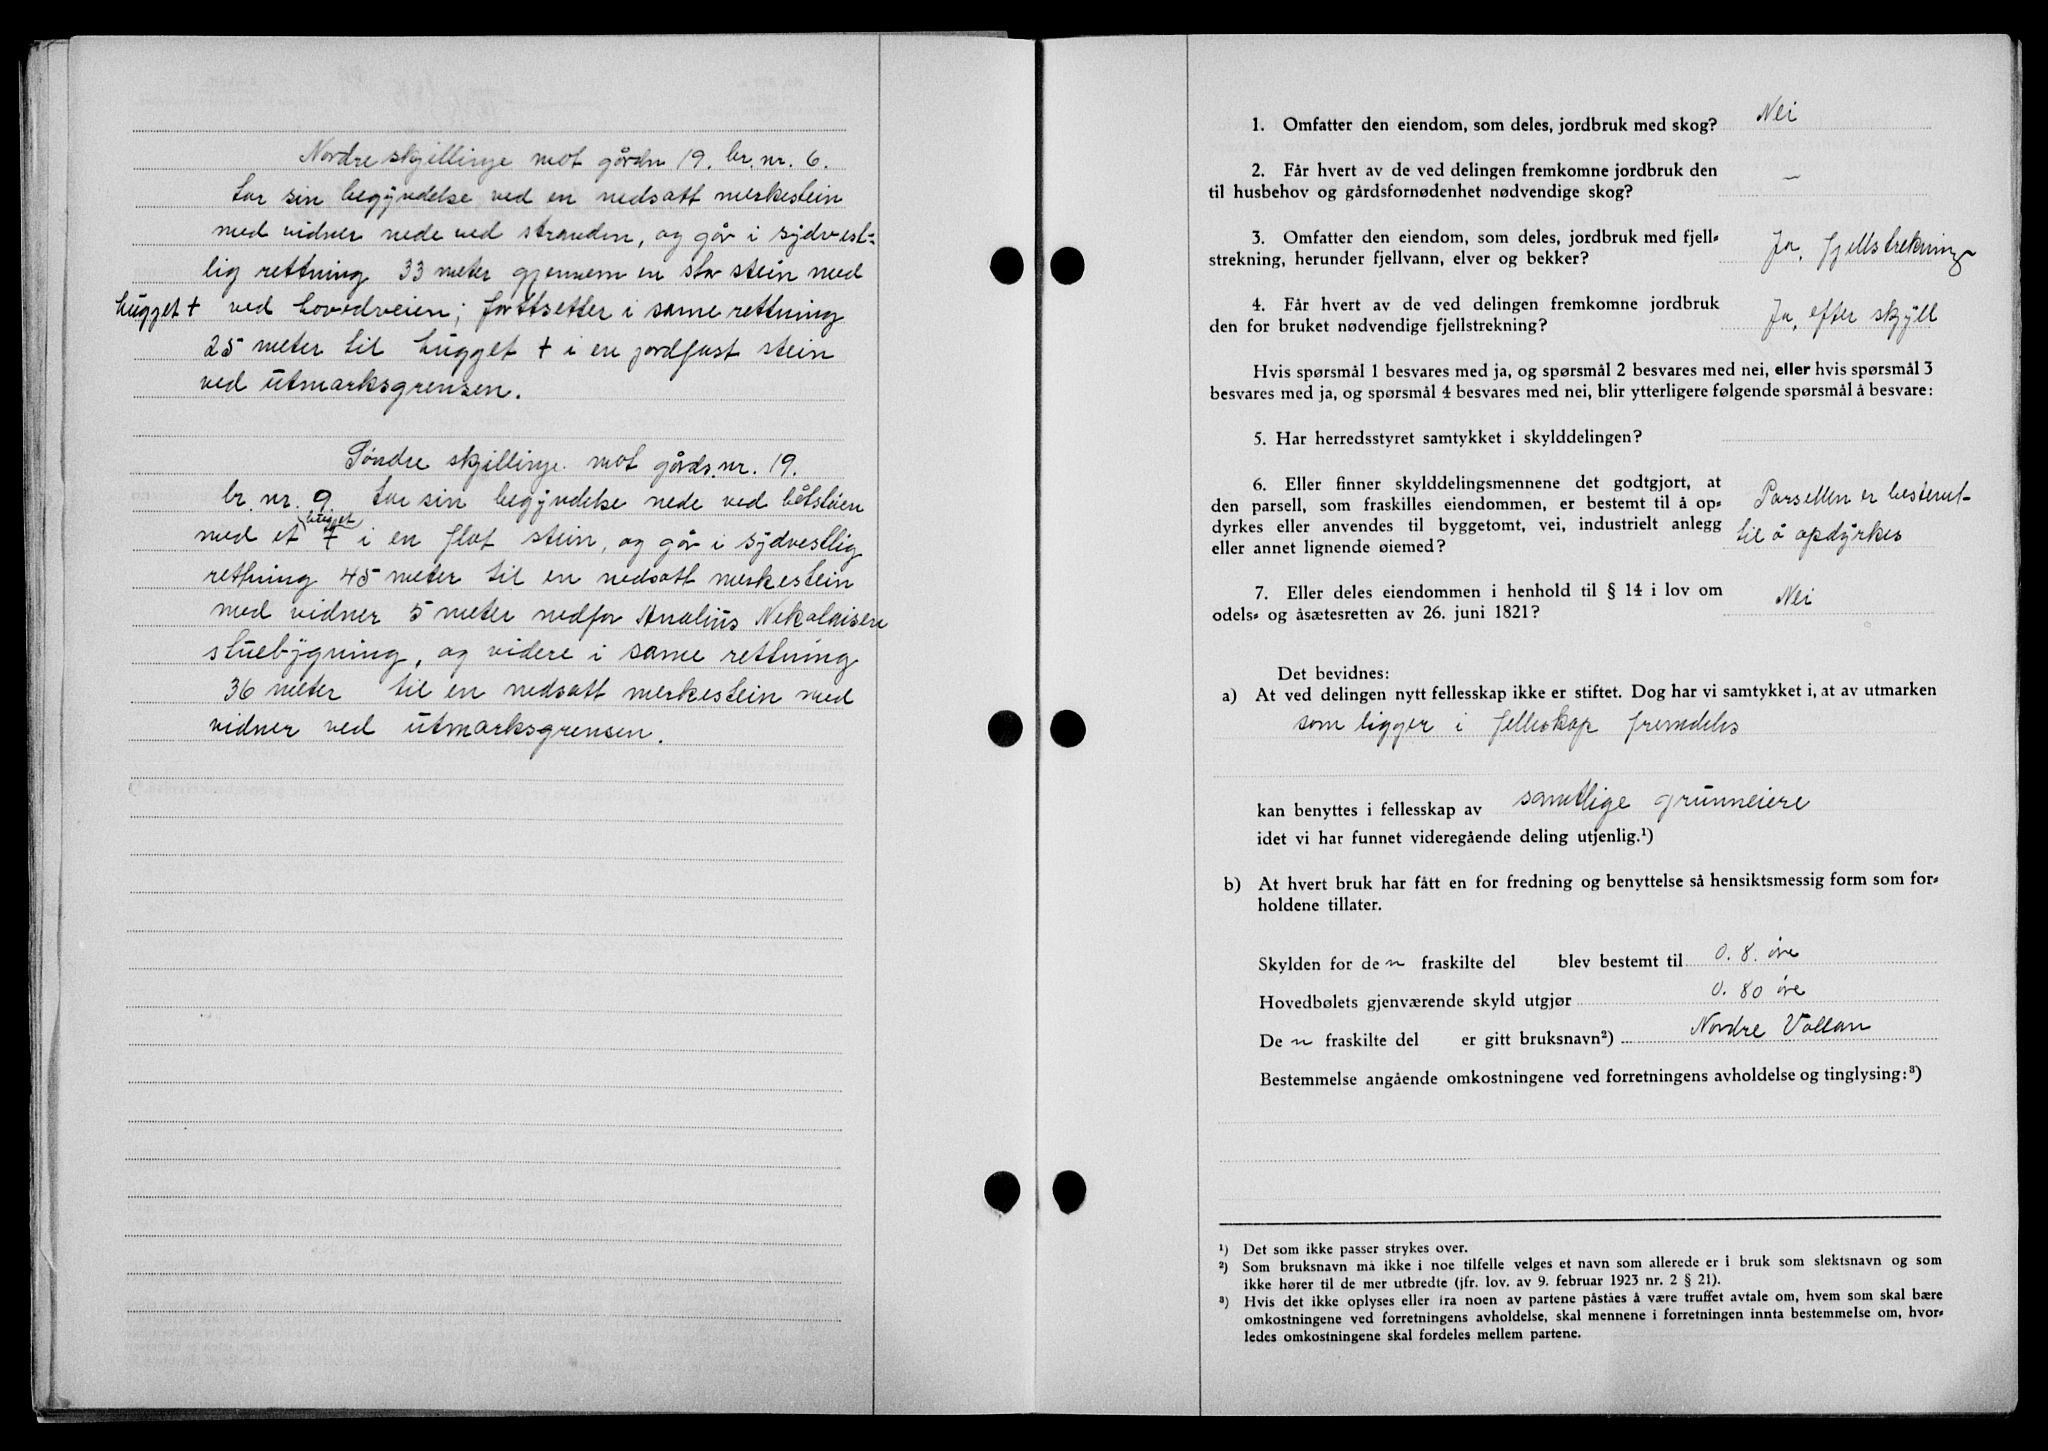 Nordre skjillinje mot gårdn 19. br. nr. 6.
tar sin begyndelse ved en nedsatt merkestein
med vidner nede ved stranden, og går i sydvest-
lig rettning 33 meter gjennem en stor stein med
hugget + ved hovedveien; forttsetter i same rettning
25 meter til hugget + i en jordfast stein
ved utmarksgrensen.
Søndre skjillinje mot gårds.nr. 19.
br. nr. 9 tar sin begyndelse nede ved båtstøen
hugget
med et + i en flat stein, og går i sydvestlig
rettning 45 meter til en nedsatt merkestein
med vidner 5 meter nedfor Analius Nekolaisens
stuebygning, og videre i same rettning
36 meter til en nedsatt merkestein med
vidner ved utmarksgrensen.
1. Omfatter den eiendom, som deles, jordbruk med skog? Nei
2. Får hvert av de ved delingen fremkomne jordbruk den
til husbehov og gårdsfornødenhet nødvendige skog? —
3. Omfatter den eiendom, som deles, jordbruk med fjell-
strekning, herunder fjellvann, elver og bekker? Ja, fjellstrekning
4. Får hvert av de ved delingen fremkomne jordbruk
den for bruket nødvendige fjellstrekning? Ja, efter skyll
Hvis spørsmål 1 besvares med ja, og spørsmål 2 besvares med nei, eller hvis spørsmål 3
besvares med ja, og spørsmål 4 besvares med nei, blir ytterligere følgende spørsmål å besvare:
5. Har herredsstyret samtykket i skylddelingen?
6. Eller finner skylddelingsmennene det godtgjort, at
den parsell, som fraskilles eiendommen, er bestemt til å op-
dyrkes eller anvendes til byggetomt, vei, industrielt anlegg
eller annet lignende øiemed?
Parsellen er bestemt
til å opdyrkes
7. Eller deles eiendommen i henhold til § 14 i lov om
odels- og åsætesretten av 26. juni 1821? Nei
Det bevidnes:
a) At ved delingen nytt fellesskap ikke er stiftet. Dog har vi samtykket i, at av utmarken
som ligger i felleskap fremdeles
kan benyttes i fellesskap av samtlige grunneiere
idet vi har funnet videregående deling utjenlig.¹)
b) At hvert bruk har fått en for fredning og benyttelse så hensiktsmessig form som for-
holdene tillater.
Skylden for de n fraskilte del blev bestemt til 0. 8. øre
Hovedbølets gjenværende skyld utgjør 0. 80 øre
De n fraskilte del er gitt bruksnavn²) Nordre Vollan
Bestemmelse angående omkostningene ved forretningens avholdelse og tinglysing:³)
¹) Det som ikke passer strykes over.
²) Som bruksnavn må ikke i noe tilfelle velges et navn som allerede er i bruk som slektsnavn og som
ikke hører til de mer utbredte (jfr. lov. av 9. februar 1923 nr. 2 § 21).
³) Hvis det ikke oplyses eller fra noen av partene påståes å være truffet avtale om, hvem som skal bære
omkostningene ved forretningens avholdelse, skal mennene i forretningen innta bestemmelse om, hvor-
ledes omkostningene skal fordeles mellem partene.